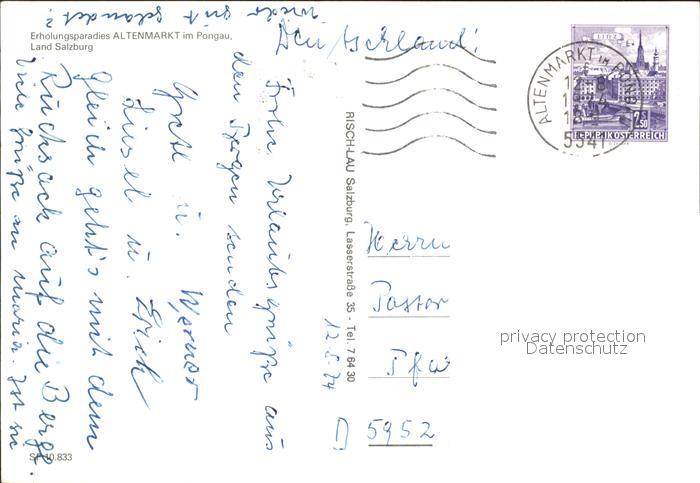 Erholungsparadies ALTENMARKT im Pongau,
Land Salzburg
Deutschland!
Frohe Urlaubsgrüße aus
den Bergen senden
Gretl u. Werner
Liesel u. Erich
Gleich geht's mit dem
Rucksack auf die Berge.
Viele Grüße an Maria. Ist sie
wieder gut gelandet?
RISCH-LAU Salzburg, Lasserstraße 35 - Tel. 7 64 30
12.8.74
LINZ
2.50
REPUBLIK ÖSTERREICH
ALTENMARKT im PONGAU
5541
Herrn
Pastor
D 5952
privacy protection
Datenschutz
10.833